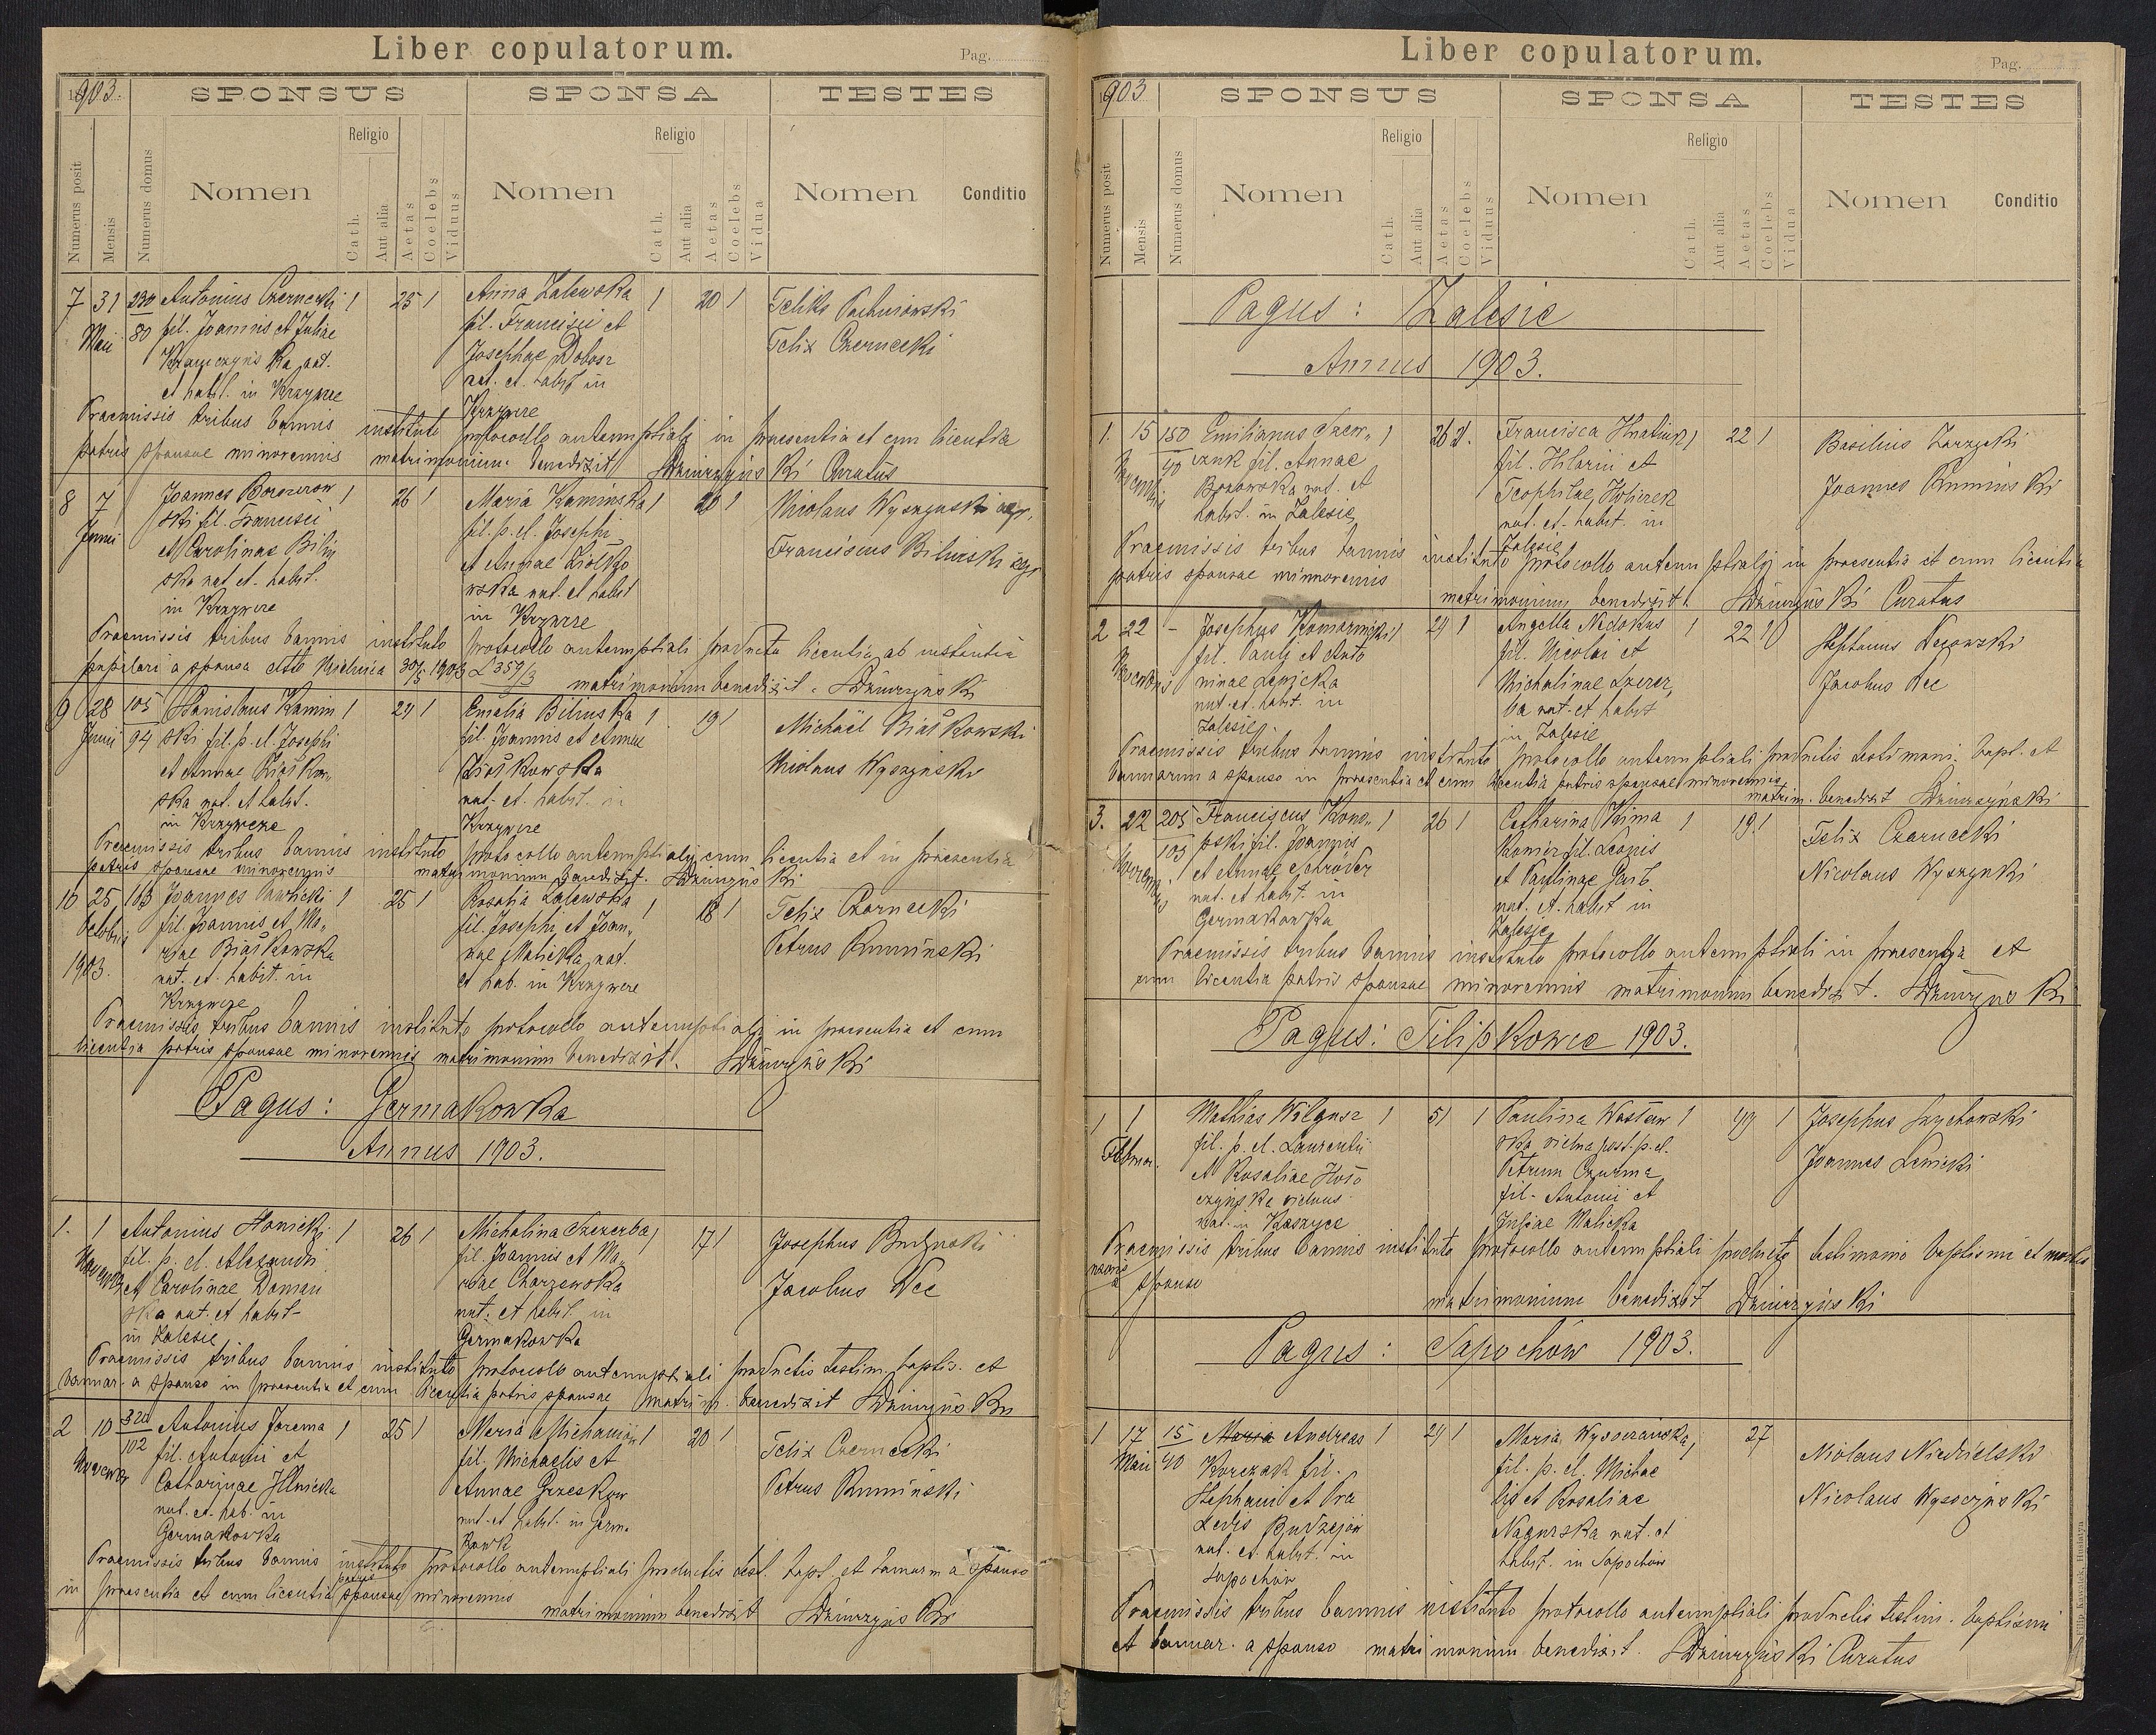 Liber copulatorum.
Pag.
1903.
SPONSUS
SPONSA
TESTES
Numerus posit
Mensis
Numerus domus
Nomen
Religio
Cath.
Aut alia
Aetas
Coelebs
Viduus
Nomen
Religio
Cath.
Aut alia
Aetas
Coelebs
Vidua
Nomen
Conditio
7 31 230 Antonius Czernecki 1 25 1 Anna Zalewska 1 20 1
Maii 80 fil. Joannis et Juliae fil. Francisci et Felix Czernecki
nat. Josephae Dobosz
et habit. in Krzywcze nat. et habit in
Krzywcze
Praemissis tribus bannis instituto protocollo antenuptiali in praesentia et cum licentia
patris sponsae minorennis matrimonium benedixit Dziurzyński Curatus
8 7 Joannes 1 26 1 Maria Kamińska 1 20 1 Nicolaus Wyszyński agr.
Junii ski fil. Francisci fil. p. d. Josephi Franciscus Biliński agr
et Carolinae Biliń et Annae Ziółko
ska nat et habit. wska nat. et habit
in Krzywcze in Krzywcze
Praemissis tribus bannis instituto protocollo antenuptiali producta licentia ab instantia
pupilari a sponsa 30/5 1903 L 359/3 matrimonium benedixit. Dziurzyński
9 28 105 Stanislaus Kamiń 1 24 1 Emilia Bilinska 1 19 1 Michaël Biaśkowski
Junii 94 ski fil. p. d. Josephi fil. Joannis et Annae Nicolaus Wyszyński
et Annae
ska nat. et habit. nat. et habit. in
in Krzywcze Krzywcze
Praemissis tribus bannis instituto protocollo antenuptiali cum licentia et in praesentia
patris sponsae minorennis matrimonium benedixit. Dziurzyński
10 25 103 Joannes 1 25 1 Rosalia Zalewska 1 18 1 Felix Czarnecki
Octobris fil. Joannis et Ma„ fil. Josephi et Joan„ Petrus Rumiński
1903. riae Biaśkowska nae Malicka nat.
nat. et habit. in et hab. in Krzywcze
Krzywcze
Praemissis tribus bannis instituto protocollo antenuptiali in praesentia et cum
licentia patris sponsae minorennis matrimonium benedixit. Dziurzyński
Pagus: Germakowka
Annus 1903.
1. 1 Antonius 1 26 1 Michalina Szczerba 1 17 1 Josephus Budzyński
fil. p. d. Alexandri fil Joannis et Ma„ Jacobus Nec
et Carolinae Doman riae Charzewska
ska nat. et habit nat. et habit. in
in Zalesie Germakowka
Praemissis tribus bannis instituto protocollo antenuptiali productis testim. baptis. et
bannar. a sponso in praesentia et cum licentia patris sponsae matrim. benedixit Dziurzyński
2 10 320 Antonius Jarema 1 25 1 Maria 1 20 1 Felix Czernecki
102 fil. Antonii et fil. Michaelis et Petrus Rumiński
Catharinae Ilnicka Annae Grzeskow
nat. et hab. in nat. et habit. in Germa
Germakowka kowk
Praemissis tribus bannis instituto protocollo antenuptiali productis test. bapt. et bannar a sponso
in praesentia et cum licentia patris sponsae minorennis
matrimonium benedixit Dziurzyński
Liber copulatorum.
Pag.
1903
SPONSUS
SPONSA
TESTES
Numerus posit
Mensis
Numerus domus
Nomen
Religio
Cath.
Aut alia
Aetas
Coelebs
Viduus
Nomen
Religio
Cath.
Aut alia
Aetas
Coelebs
Vidua
Nomen
Conditio
Pagus: Zalesie
Annus 1903.
1. 15 150 Emilianus 1 26 1. Francisca Hnatiuk 1 22 1 Basilius Zarzycki
40 fil. Annae fil. Hilarii et Joannes Rumiński
nat. et Teophilae
habit. in Zalesie nat. et habit. in
Zalesie
Praemissis tribus bannis instituto protocollo antenuptiali in praesentia et cum licentia
patris sponsae minorennis
matrimonium benedixit Dziurzyński Curatus
2 22 - Josephus Komarnicki 1 24 1 Angella 1 22 1 Stephanus
fil. Pauli et Anto fil. Nicolai et Jacobus Nec
ninae Lenicka Michalinae Szczer
nat. et habit. in ba nat. et habit
Zalesie in Zalesie
Praemissis tribus bannis instituto protocollo antenuptiali productis testimoni. bapt. et
bannorum a sponso in praesentia et cum licentia patris sponsae minorennis
matrim. benedixit Dziurzyński
3. 22 205 Franciscus Kono„ 1 26 1 Catharina 1 19 1 Felix Czarnecki
105 pski fil. Joannis fil. Leonis Nicolaus Wyszyński
et Annae Schröder et Paulinae
nat. et habit in nat. et habit in
Germakowka Zalesie
Praemissis tribus bannis instituto protocollo antenuptiali in praesentia et
cum licentia patris sponsae minorennis matrimonium benedixit. Dziurzyński
Pagus: Filipkowce 1903.
1 1 Mathias Wilgusz 1 51 1 Paulina 1 49 1 Josephus
Februar. fil. p. d. Laurentii ska vidua post p. d. Joannes Lenicki
et Rosaliae Petrum Czurma
viduus fil. Antonii et
nat. in Juliae Malicka
Praemissis tribus bannis instituto protocollo antenuptiali producto testimonio baptismi et mortis
a sponso
matrimonium benedixit Dziurzyński
Pagus: Sapochów 1903.
1 17 15 Maria Andreas 1 24 1 Maria 27 Nicolaus Niedzielski
Maii 40 Korczak fil. fil. p. d. Michae Nicolaus Wysoczyński
Stephani et Pra lis et Rosaliae
xedis Nagurska nat. et
nat. et habit. in habit. in Sapochów
Sapochów
Praemissis tribus bannis instituto protocollo antenuptiali productis testim. baptismi
et bannar. a sponso matrimonium benedixit. Dziurzyński Curatus
Filip Kawalek, Husiatyn